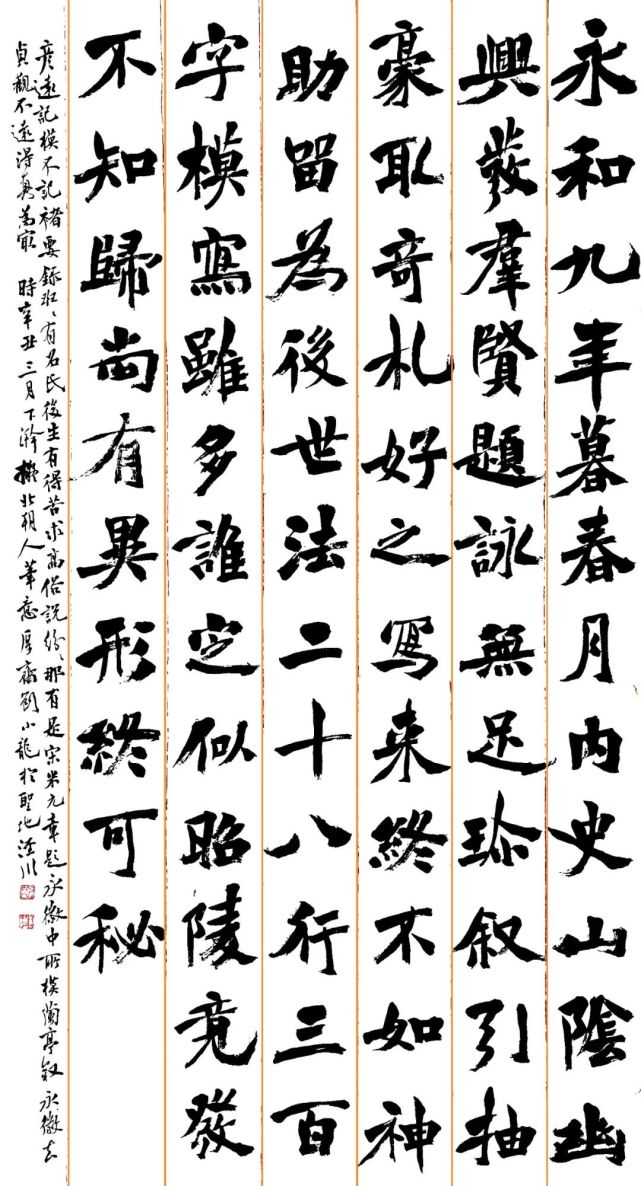 永和九年暮春月内史山陰幽
興發羣賢題詠無足珎叙引抽
豪取奇札好之写来終不如神
助留為後世法二十八行三百
字模寫雖多誰定似昭陵竟發
不知歸尚有異形終可秘
彦遠記模不記褚要録班〻有名氏後生有得苦求高俗説紛〻那有是宋米元章題永徽中所模蘭亭叙永徽去
貞觀不遠得真為最 時辛丑三月下澣擬北朝人筆意厚齋劉小龍於聖地涇川